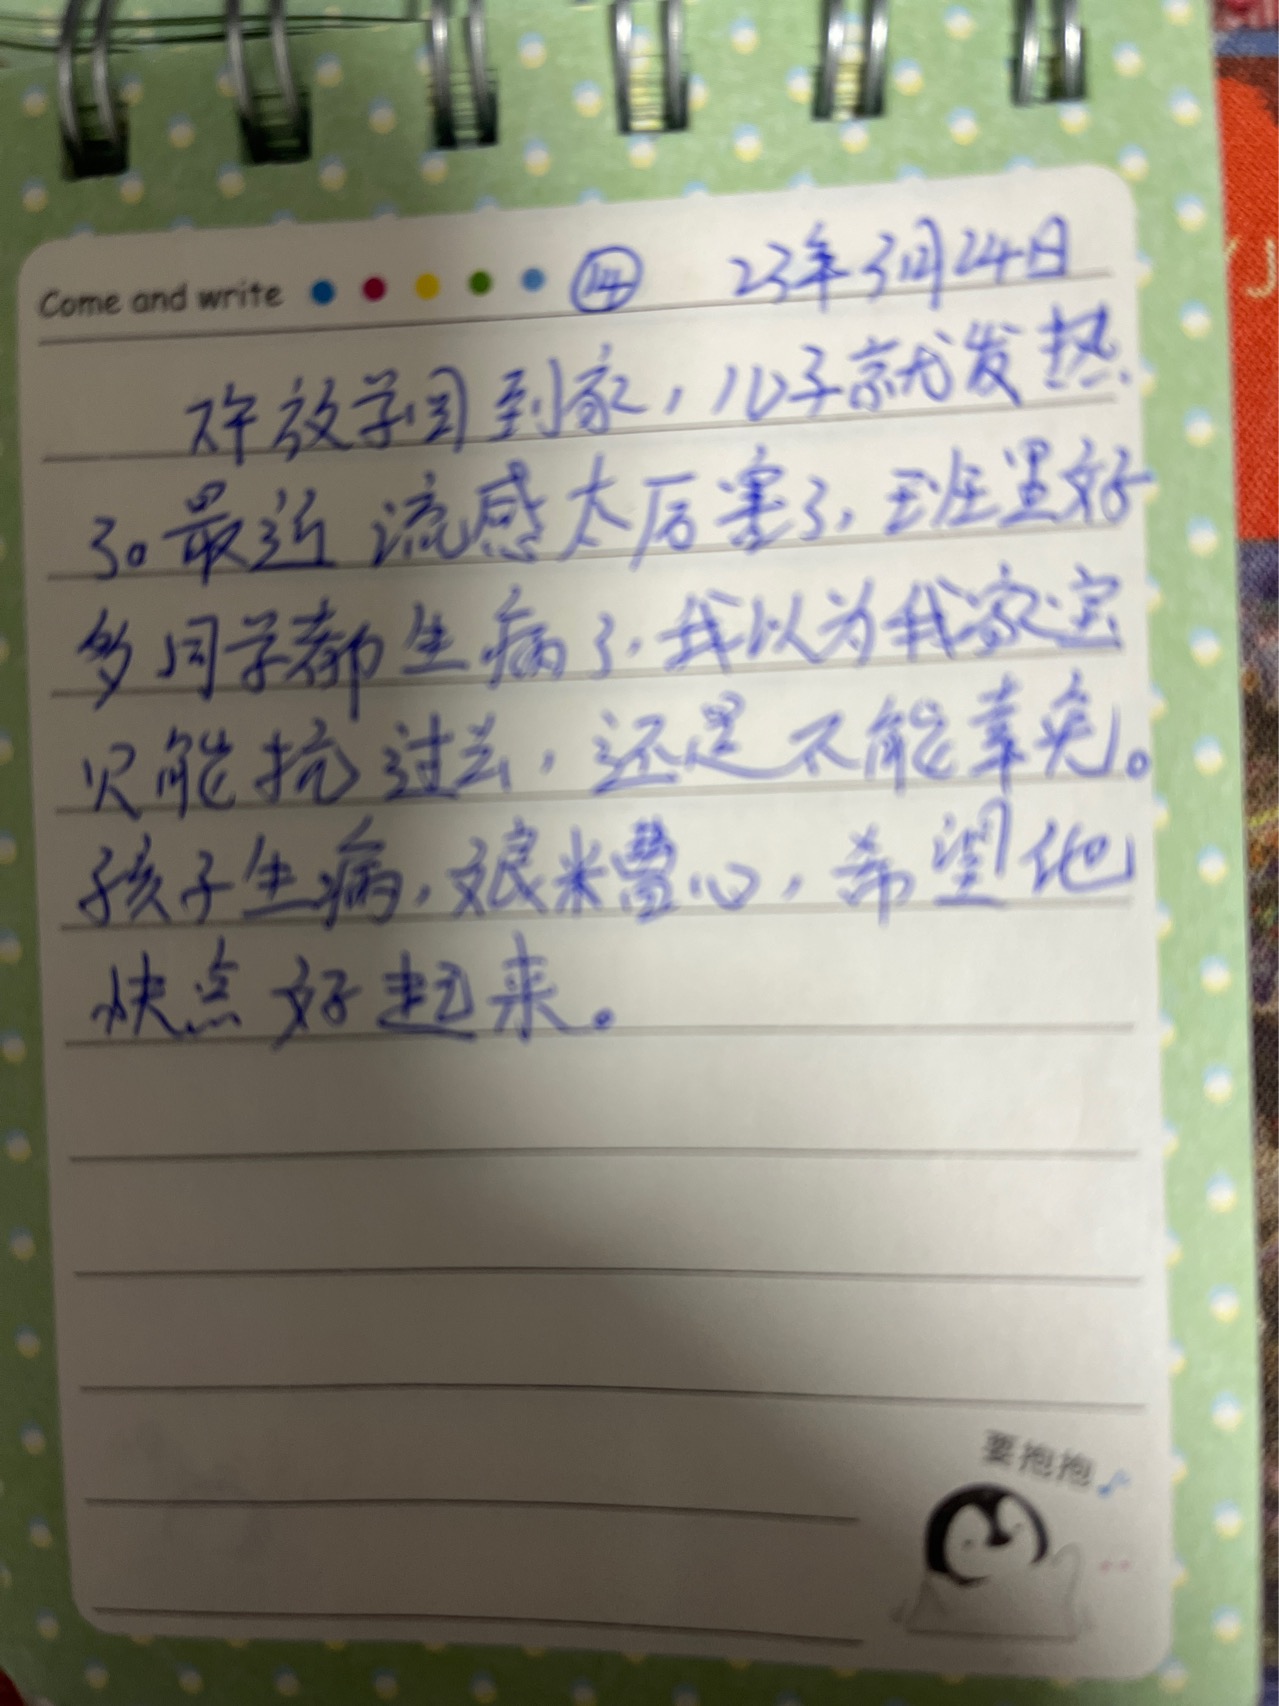 Come and write ⑭ 23年3月24日
昨放学回到家，儿子就发热
了。最近流感太厉害了，班里好
多同学都生病了，我以为我家宝
贝能抗过去，还是不能幸免。
孩子生病，娘来曹心，希望他
快点好起来。
要抱抱